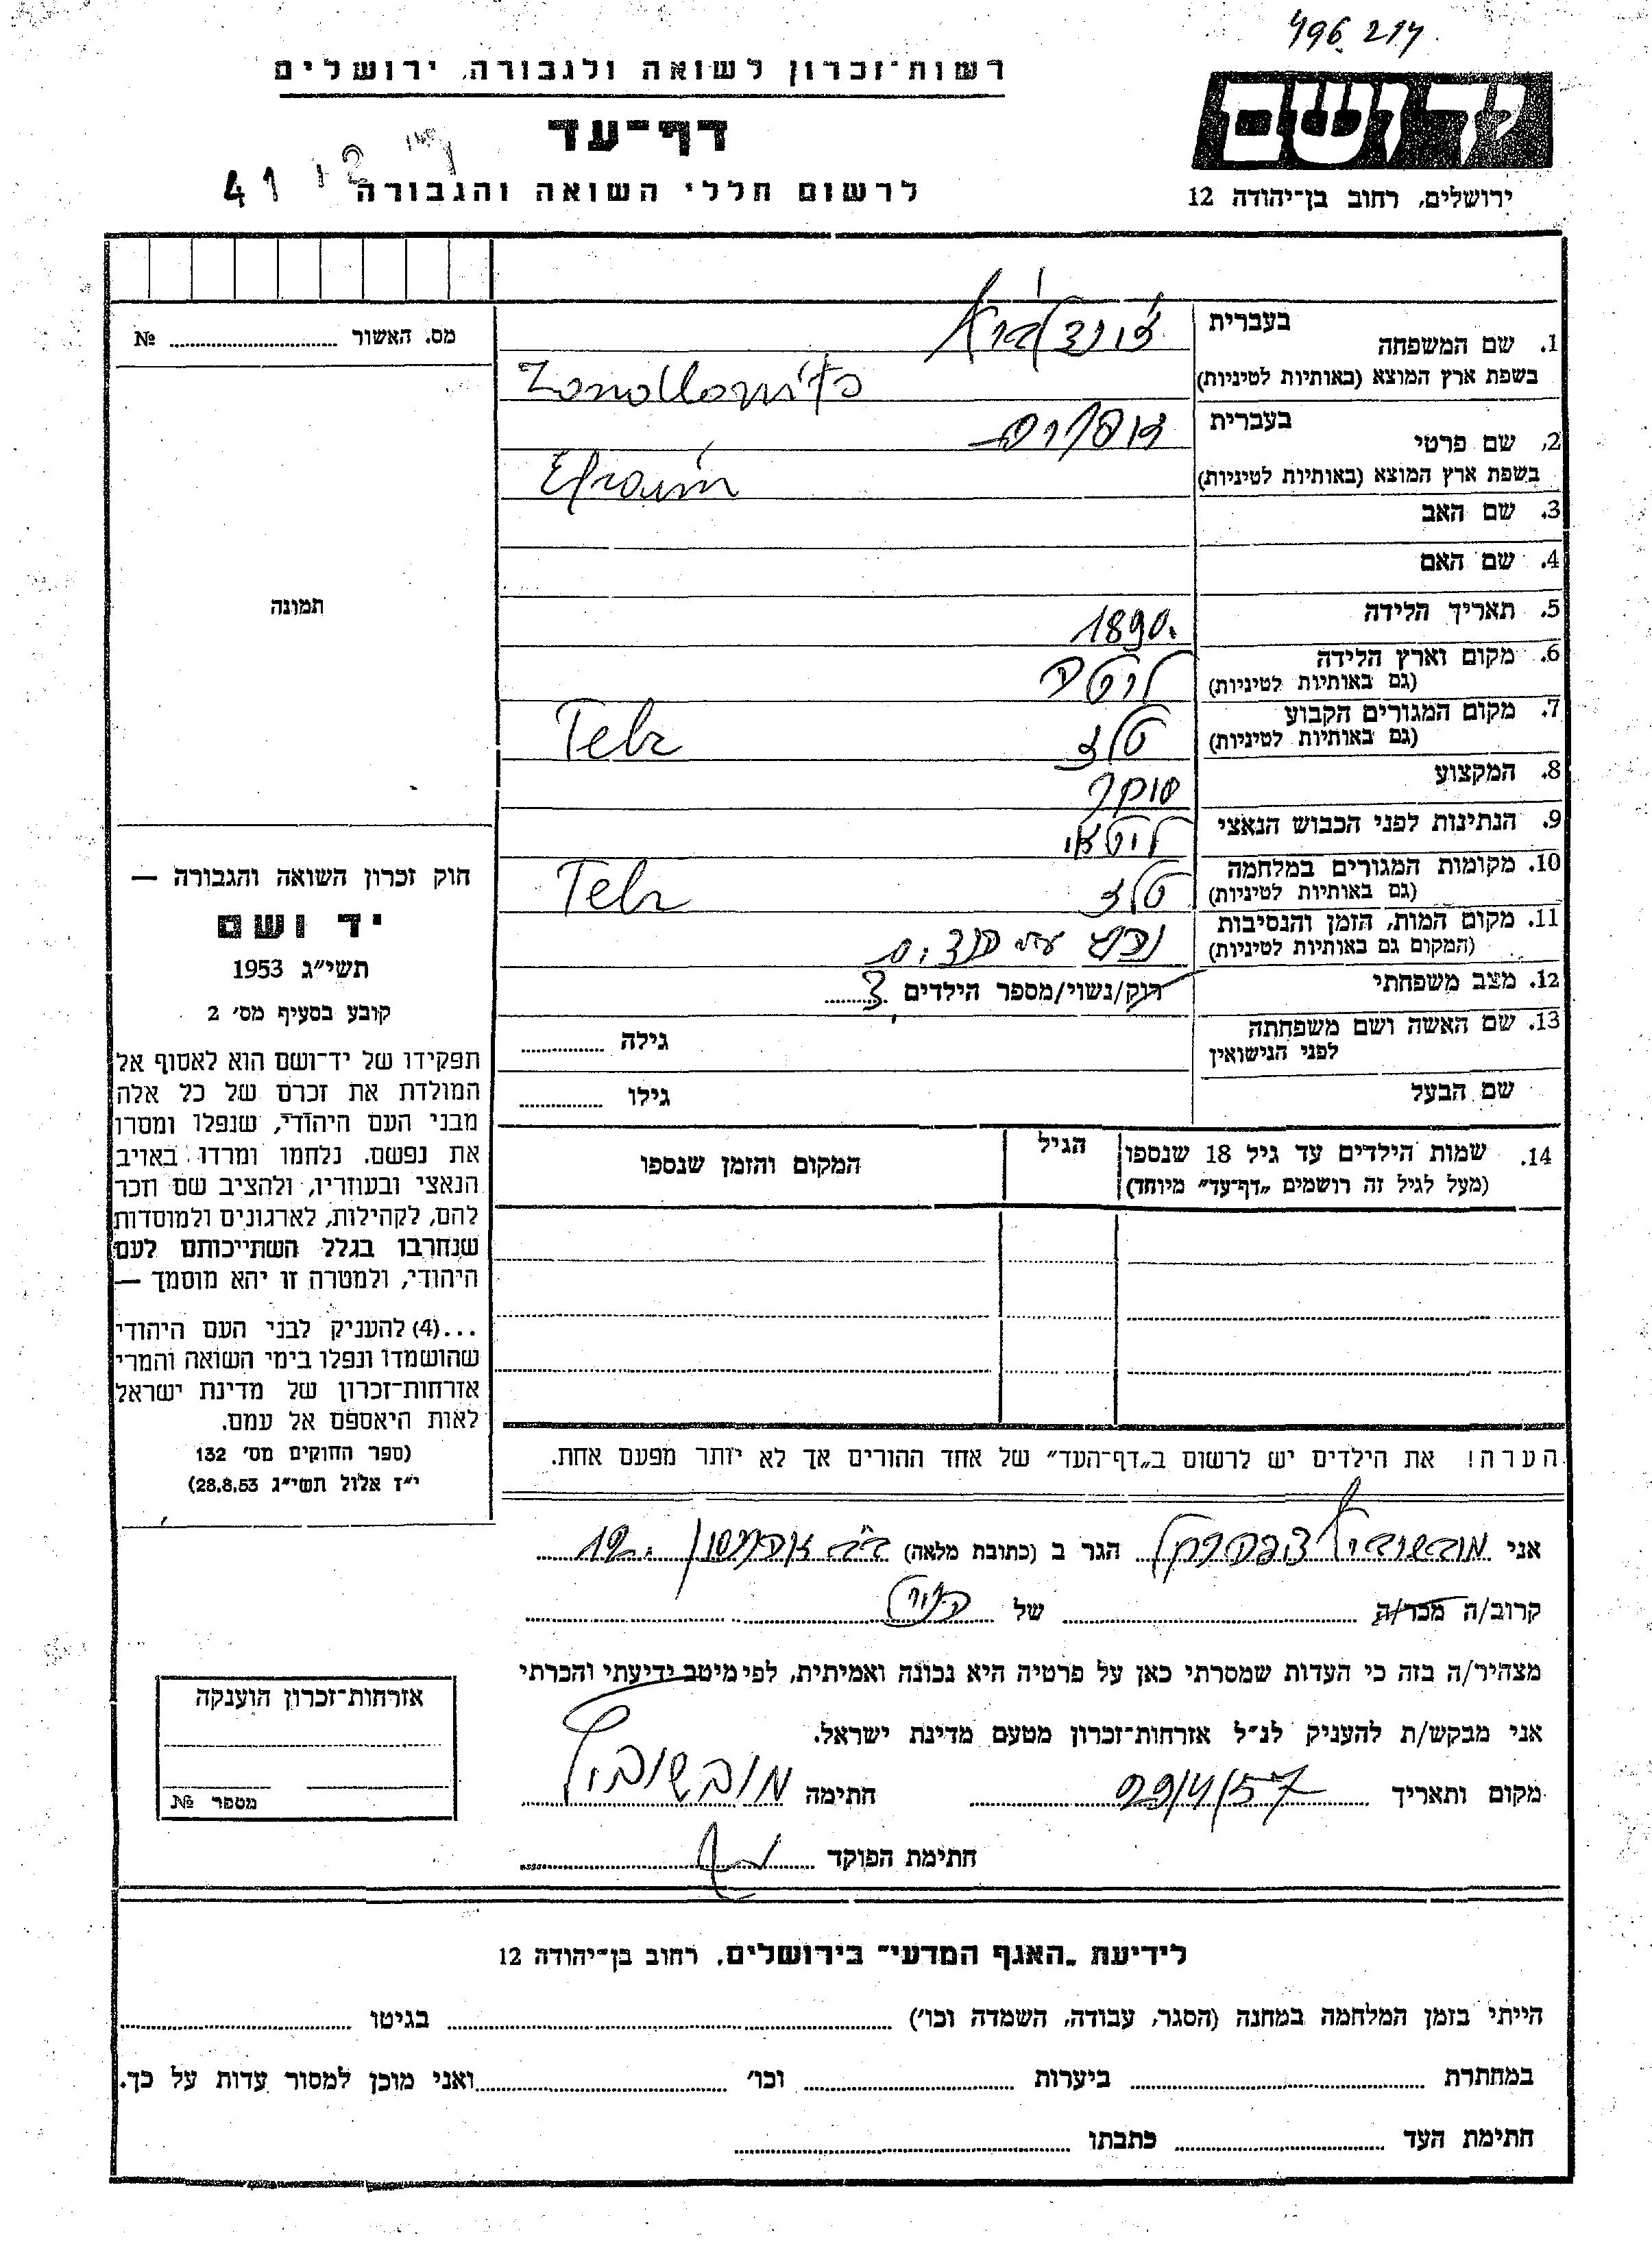 496 217
רשות־זכרון לשואה ולגבורה, ירושלים
יד ושם
דף־עד
לרשום חללי השואה והגבורה
41
ירושלים, רחוב בן־יהודה 12
מס. האשור № 
1. שם המשפחה
בעברית
בשפת ארץ המוצא (באותיות לטיניות)
2. שם פרטי
בעברית
בשפת ארץ המוצא (באותיות לטיניות) Efraim
3. שם האב
4. שם האם
5. תאריך הלידה 1890.
6. מקום וארץ הלידה ליטא
(גם באותיות לטיניות)
7. מקום המגורים הקבוע טלז Telz
(גם באותיות לטיניות)
8. המקצוע סוחר
9. הנתינות לפני הכבוש הנאצי ליטאי
10. מקומות המגורים במלחמה טלז Telz
(גם באותיות לטיניות)
11. מקום המות, הזמן והנסיבות
(המקום גם באותיות לטיניות)
12. מצב משפחתי רוק/נשוי/מספר הילדים 3
13. שם האשה ושם משפחתה גילה
לפני הנישואין
שם הבעל גילו
14. שמות הילדים עד גיל 18 שנספו הגיל המקום והזמן שנספו
(מעל לגיל זה רושמים „דף־עד" מיוחד)
תמונה
חוק זכרון השואה והגבורה —
יד ושם
תשי״ג 1953
קובע בסעיף מס׳ 2
תפקידו של יד־ושם הוא לאסוף אל
המולדת את זכרם של כל אלה
מבני העם היהודי, שנפלו ומסרו
את נפשם. נלחמו ומרדו באויב
הנאצי ובעוזריו, ולהציב שם וזכר
להם, לקהילות, לארגונים ולמוסדות
שנחרבו בגלל השתייכותם לעם
היהודי, ולמטרה זו יהא מוסמך —
...(4) להעניק לבני העם היהודי
שהושמדו ונפלו בימי השואה והמרי
אזרחות־זכרון של מדינת ישראל
לאות היאספם אל עמם.
(ספר החוקים מס׳ 132
י״ז אלול תשי״ג 28.8.53)
הערה! את הילדים יש לרשום ב„דף־העד" של אחד ההורים אך לא יותר מפעם אחת.
אני הגר ב (כתובת מלאה)
קרוב/ה מכר/ה של
מצהיר/ה בזה כי העדות שמסרתי כאן על פרטיה היא נכונה ואמיתית, לפי מיטב ידיעתי והכרתי
אני מבקש/ת להעניק לנ״ל אזרחות־זכרון מטעם מדינת ישראל.
מקום ותאריך 29/4/57 חתימה
חתימת הפוקד
אזרחות־זכרון הוענקה
מספר №
לידיעת „האגף המדעי" בירושלים, רחוב בן־יהודה 12
הייתי בזמן המלחמה במחנה (הסגר, עבודה, השמדה וכו׳) בגיטו
במחתרת ביערות וכו׳ ואני מוכן למסור עדות על כך.
חתימת העד כתבתו